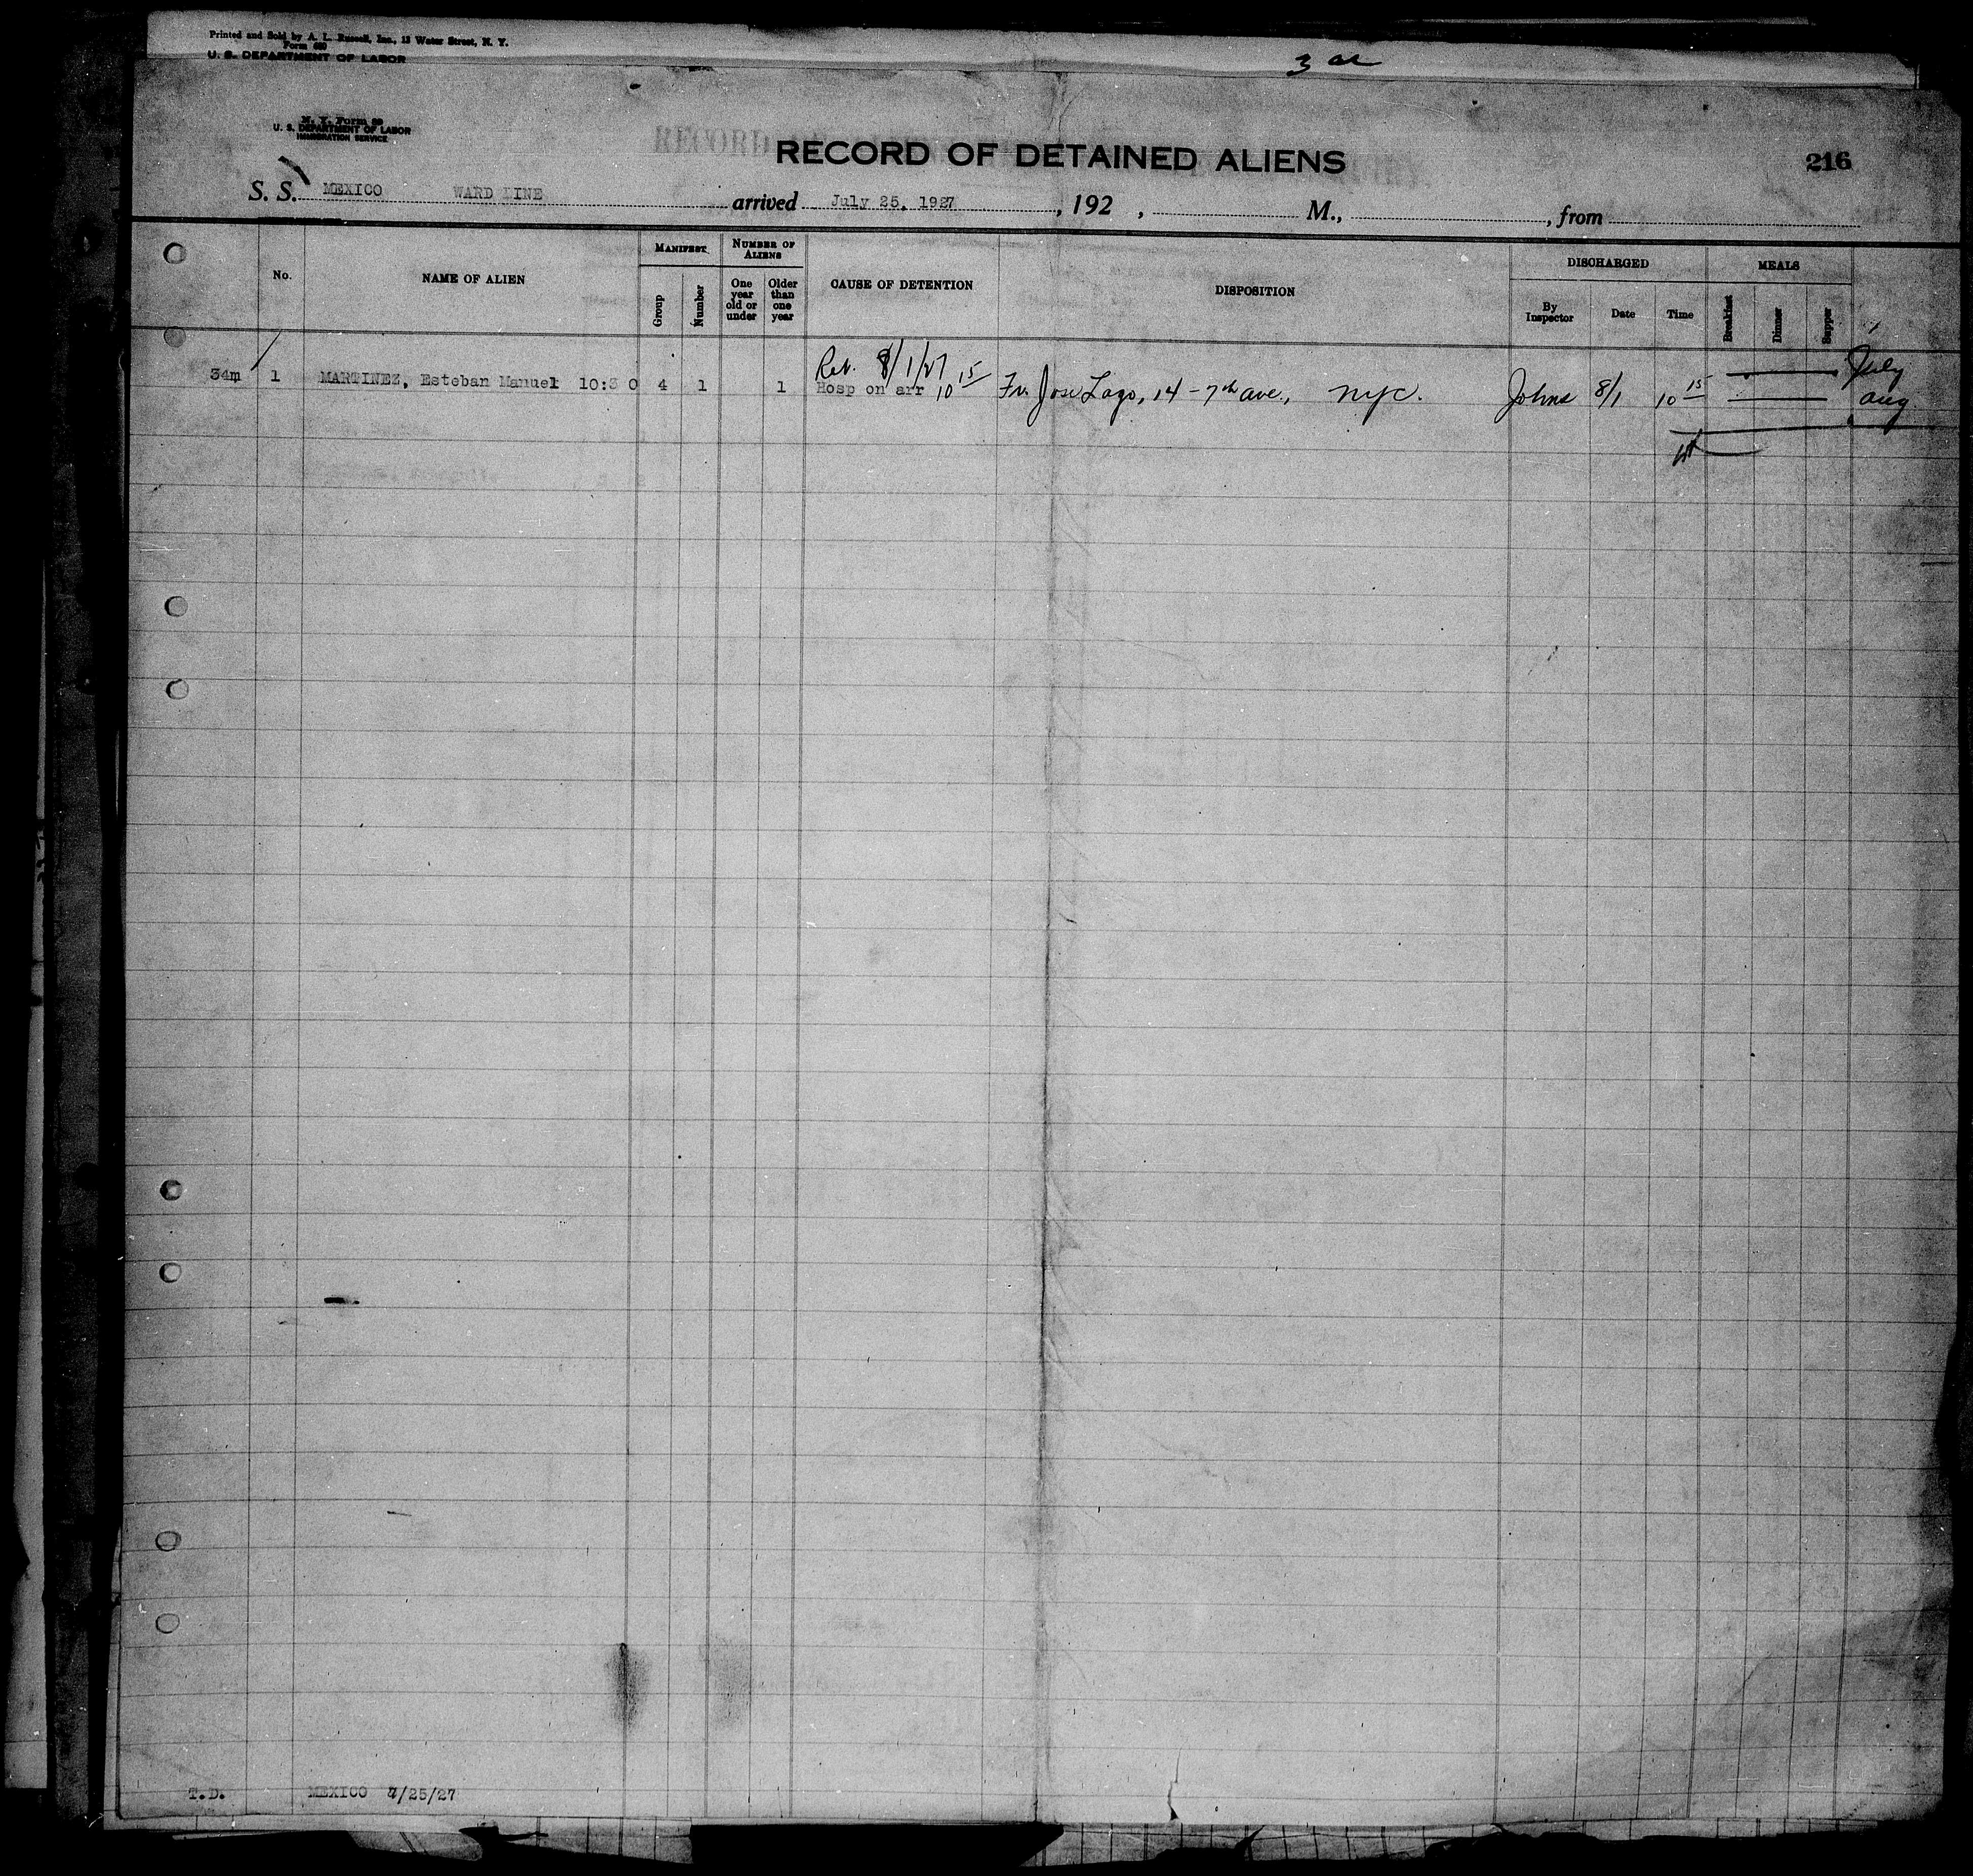 Printed and Sold by A. L. Russell, Inc., 12 Water Street, N. Y.
Form 630
U. S. DEPARTMENT OF LABOR
N. Y. Form 89
U. S. DEPARTMENT OF LABOR
IMMIGRATION SERVICE
RECORD OF DETAINED ALIENS
216
S. S. MEXICO WARD LINE arrived July 25, 1927, 192 , M., , from
No.
NAME OF ALIEN
MANIFEST
Group
Number
NUMBER OF ALIENS
One year old or under
Older than one year
CAUSE OF DETENTION
DISPOSITION
DISCHARGED
By Inspector
Date
Time
MEALS
Breakfast
Dinner
Supper
Ret. 8/1/27 10 15
July
34m 1 MARTINEZ, Esteban Manuel 10:3 0 4 1 1 Hosp on arr Fr. Jose Lago, 14 - 7th ave., NYC. Johns 8/1 10 15 Aug.
T.D. MEXICO 7/25/27